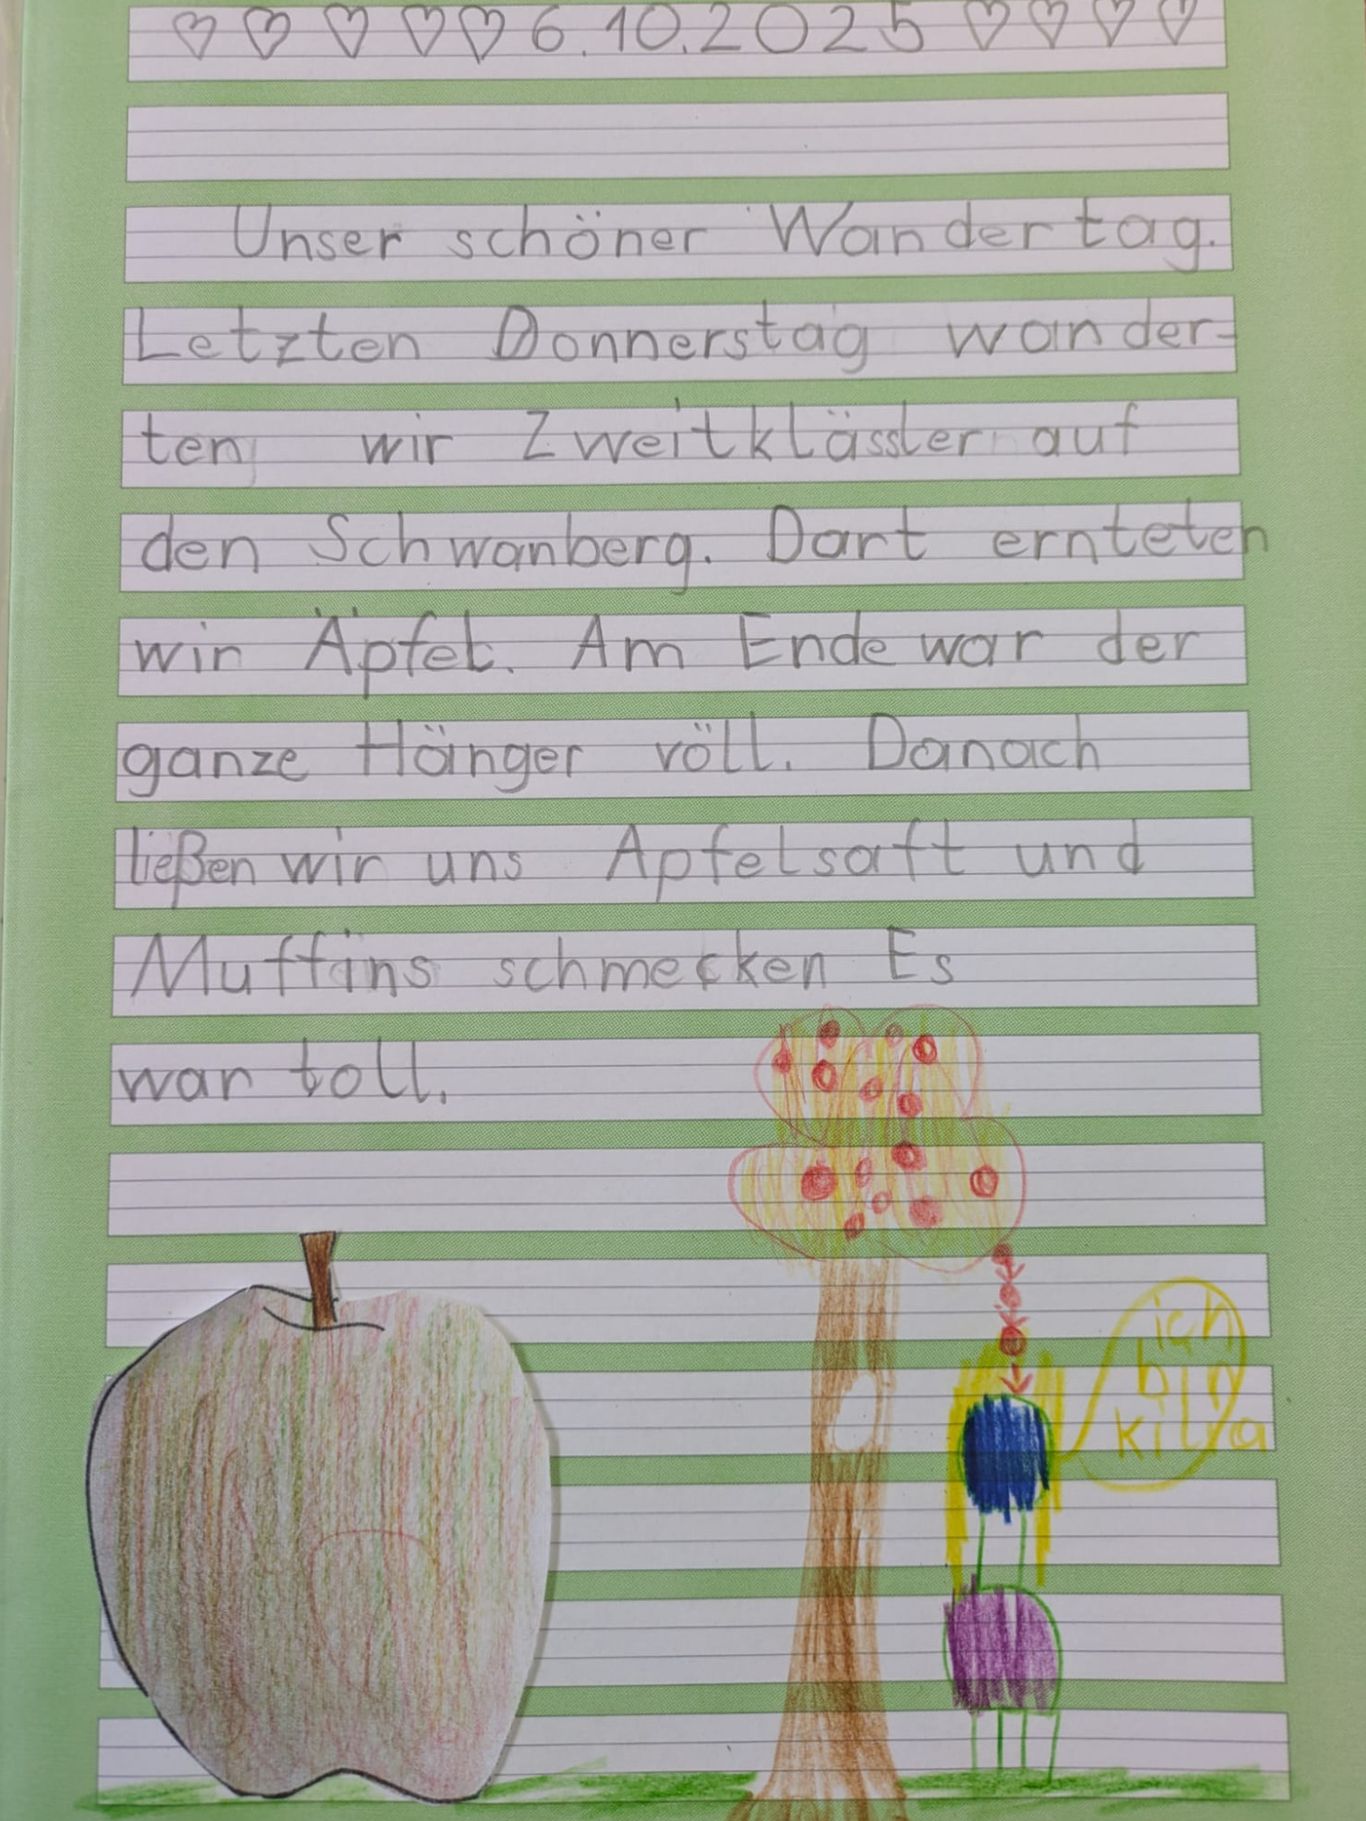 ♡ ♡ ♡ ♡ ♡ 6.10.2025 ♡ ♡ ♡ ♡
Unser schöner Wandertag.
Letzten Donnerstag wander-
ten wir Zweitklässler auf
den Schwanberg. Dort ernteten
wir Äpfel. Am Ende war der
ganze Hänger völl. Danach
ließen wir uns Apfelsaft und
Muffins schmecken Es
war toll.
ich
bin